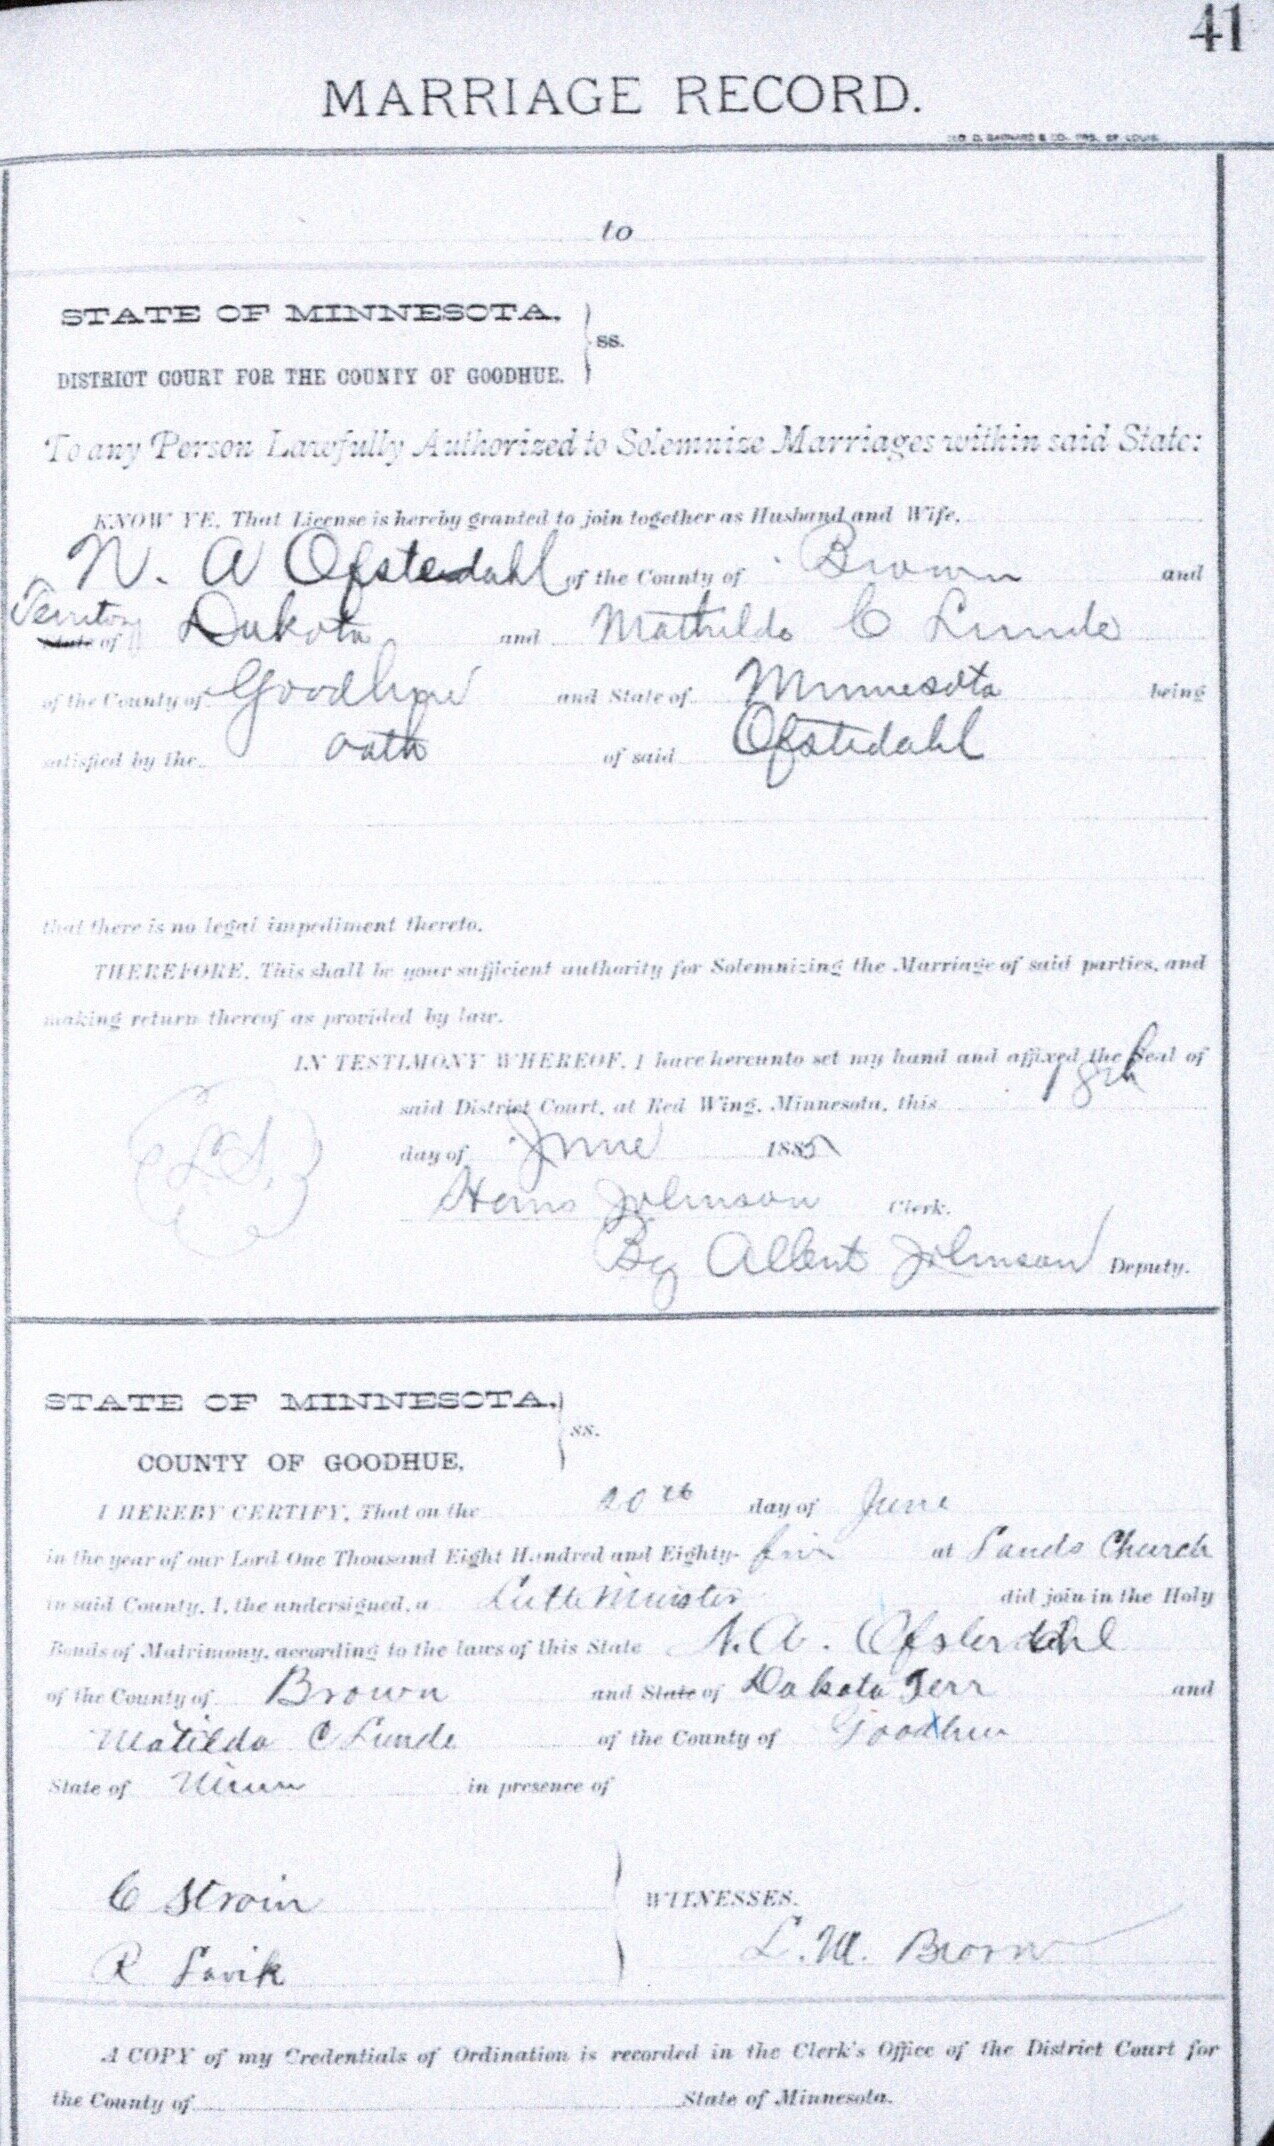 41
MARRIAGE RECORD.
GEO. D. BARNARD & CO. PRS. ST. LOUIS.
to
STATE OF MINNESOTA,
ss.
DISTRICT COURT FOR THE COUNTY OF GOODHUE.
To any Person Lawfully Authorized to Solemnize Marriages within said State:
KNOW YE, That License is hereby granted to join together as Husband and Wife,
N. A Ofstedahl of the County of Brown and
Territory State of Dakota and Mathilda C Lunde
of the County of Goodhue and State of Minnesota being
satisfied by the oath of said Ofstedahl
that there is no legal impediment thereto.
THEREFORE, This shall be your sufficient authority for Solemnizing the Marriage of said parties, and
making return thereof as provided by law.
IN TESTIMONY WHEREOF, I have hereunto set my hand and affixed the Seal of
said District Court, at Red Wing, Minnesota, this 18th
L. S.
day of June 1885
Hans Johnson Clerk.
By Albert Johnson Deputy.
STATE OF MINNESOTA,
ss.
COUNTY OF GOODHUE,
I HEREBY CERTIFY, That on the 20th day of June
in the year of our Lord One Thousand Eight Hundred and Eighty-five at Lands Church
in said County, I, the undersigned, a Luth Minister did join in the Holy
Bonds of Matrimony, according to the laws of this State N. A. Ofstedahl
of the County of Brown and State of Dakota Terr and
Matilda C Lunde of the County of Goodhue
State of Minn in presence of
C Strom
WITNESSES.
R Lavik
L. M.
A COPY of my Credentials of Ordination is recorded in the Clerk's Office of the District Court for
the County of State of Minnesota.